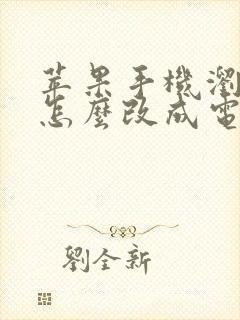 苹果手機瀏
怎麼改成電
劉全新